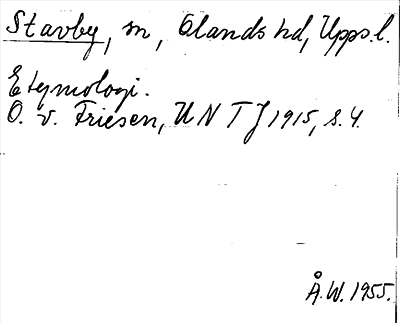 Stavby, sn, Olands hd, Upps. l.
Etymologi.
O. v. Friesen, UNTJ 1915, s. 4.
Å. W. 1955.